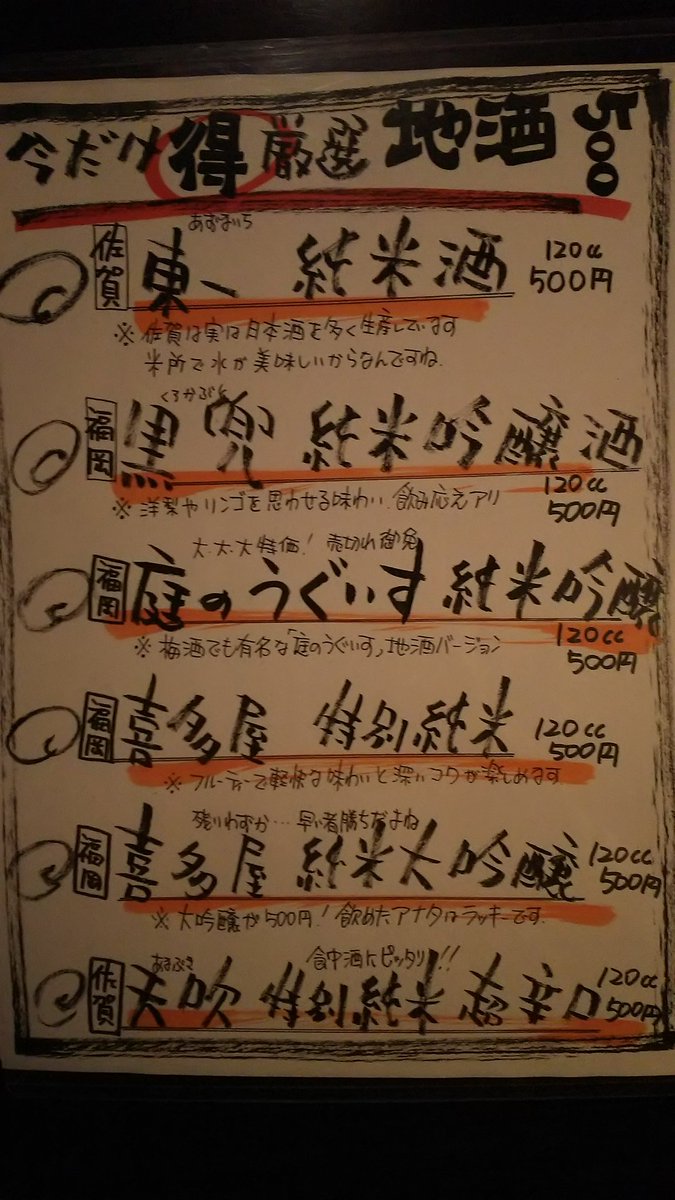 今だけ 得 厳選 地酒 500
あずまいち
佐賀 東一 純米酒 120cc 500円
※ 佐賀は実は日本酒を多く生産しています
米所で水が美味しいからなんですね.
くろかぶと
福岡 黒兜 純米吟醸酒 120cc 500円
※ 洋梨やリンゴを思わせる味わい. 飲み応えアリ
大・大・大特価! 売切れ御免
福岡 庭のうぐいす 純米吟醸 120cc 500円
※ 梅酒でも有名な「庭のうぐいす」地酒バージョン
福岡 喜多屋 特別純米 120cc 500円
※ フルーティーで軽快な味わいと深いコクが楽しめます.
残りわずか… 早い者勝ちだよね
福岡 喜多屋 純米大吟醸 120cc 500円
※ 大吟醸が500円! 飲めたアナタはラッキーです.
あまぶき 食中酒にピッタリ!!
佐賀 天吹 特別純米 超辛口 120cc 500円